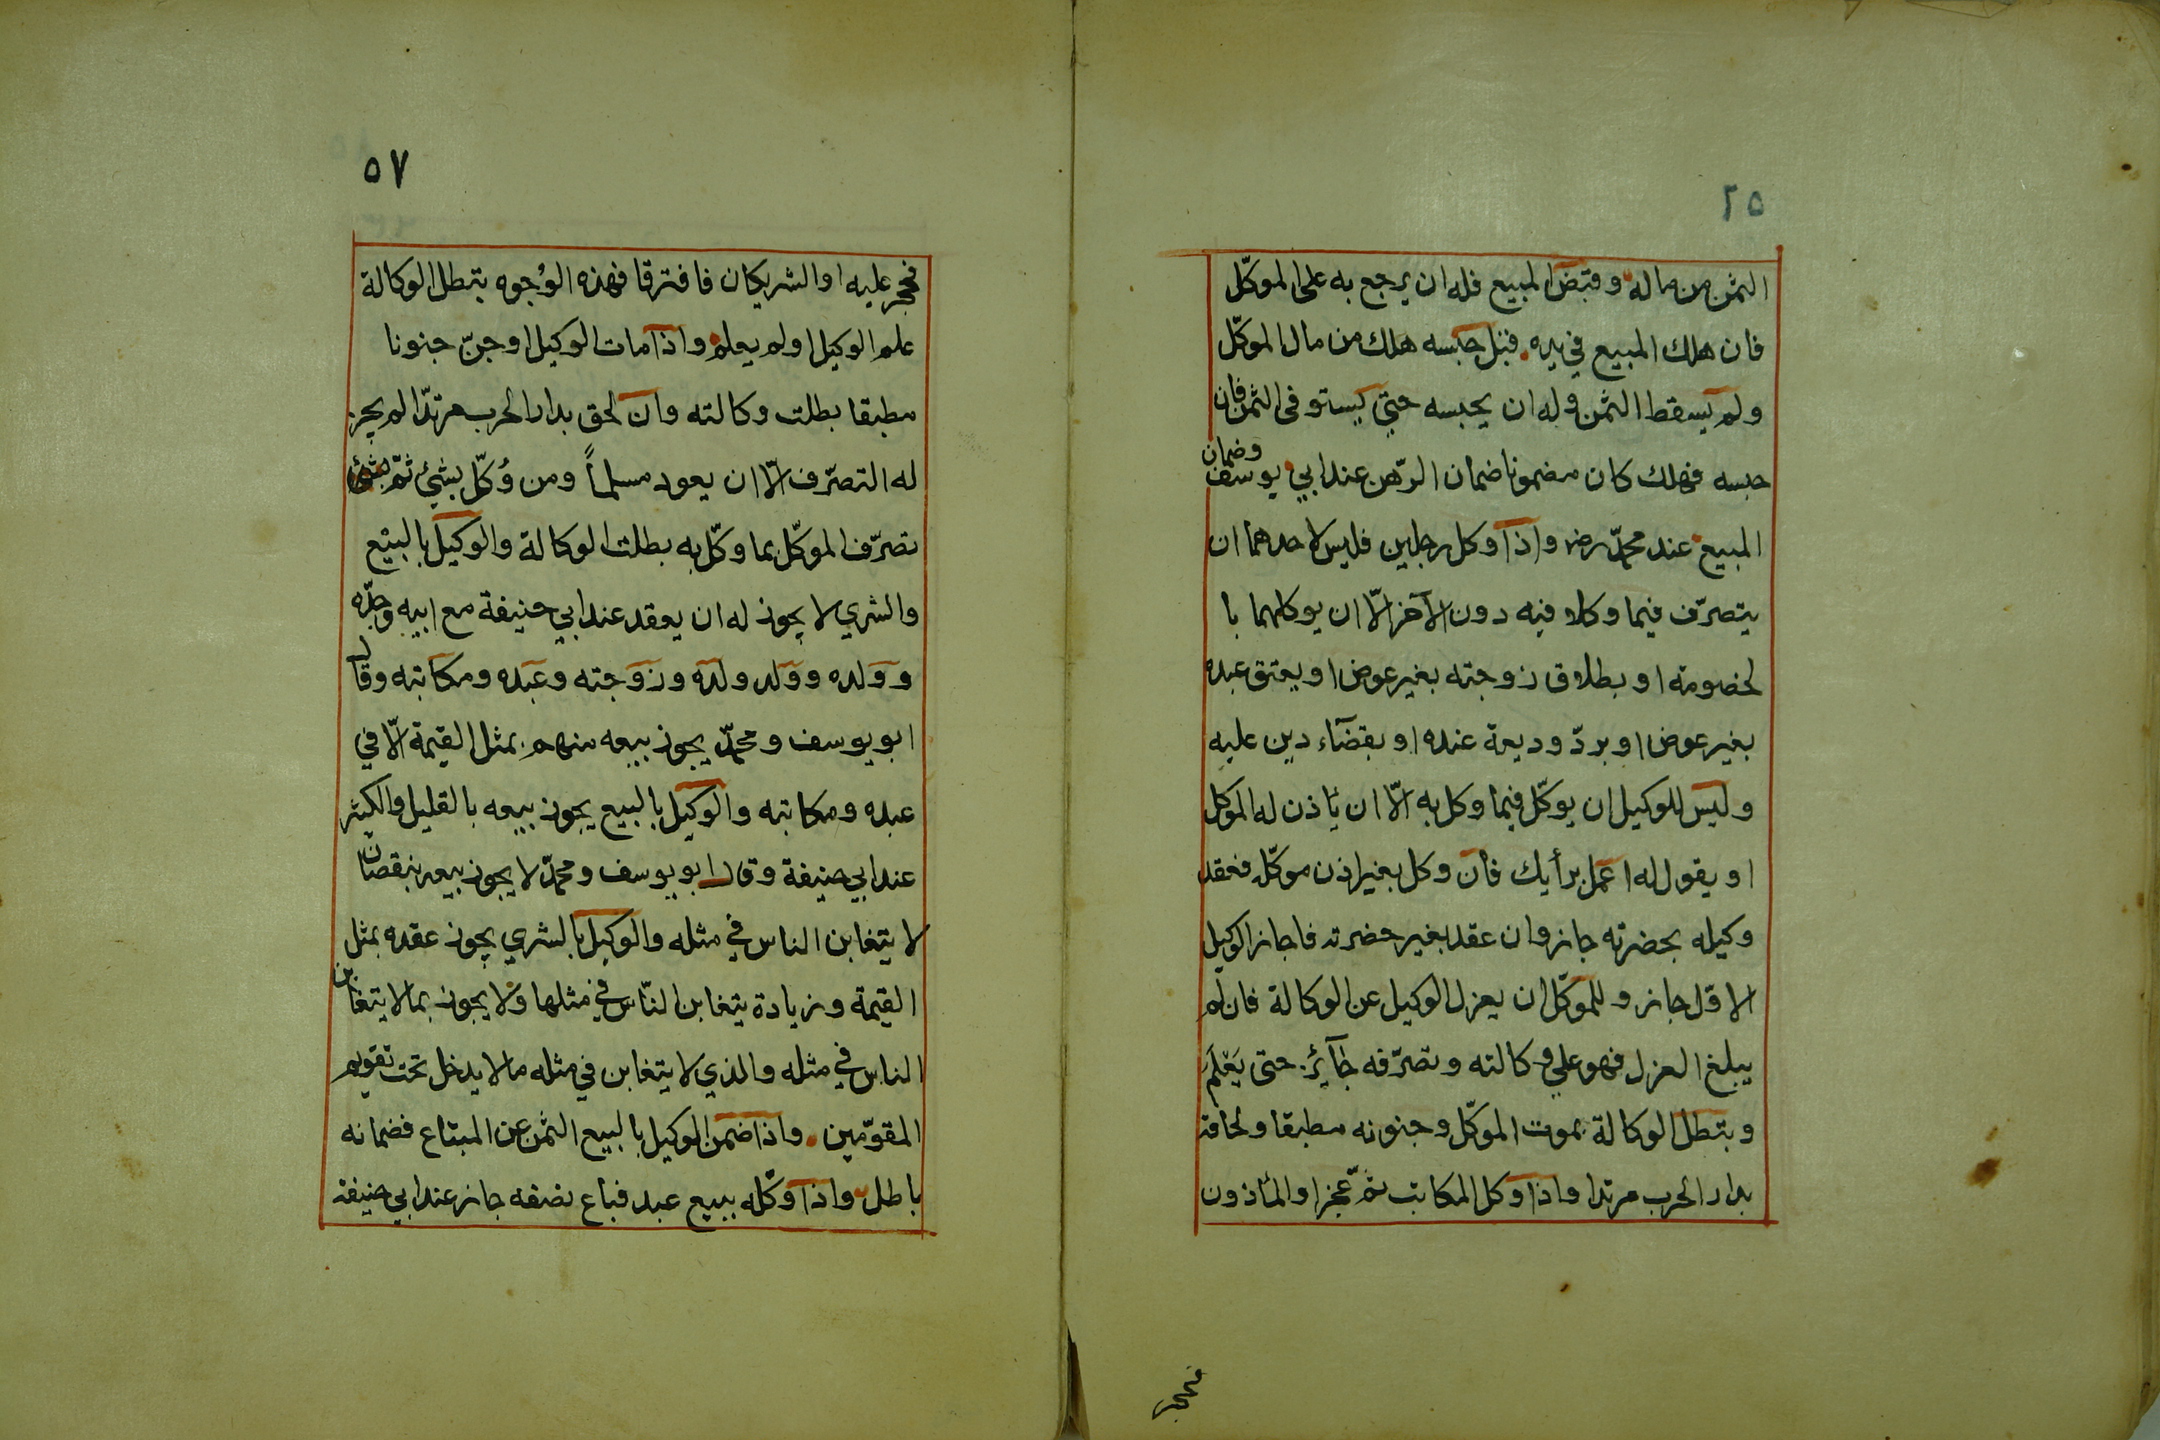 ٥٦
الثمن من ماله وقبض المبيع فله ان يرجع به على الموكّل
فان هلك المبيع في يده قبل حبسه هلك من مال الموكّل
ولم يسقط الثمن وله ان يحبسه حتى يستوفى الثمن فان
حبسه فهلك كان مضمونا ضمان الرّهن عند ابي يوسف وضمان
المبيع عند محمّد رضه واذا وكل رجلين فليس لاحدهما ان
يتصرّف فيما وكلا فيه دون الآخر الّا ان يوكلهما با
لخصومة او بطلاق زوجته بغير عوض او يعتق عبده
بغير عوض او بردّ وديعة عنده او بقضآء دين عليه
وليس للوكيل ان يوكّل فيما وكل به الّا ان ياذن له الموكل
او يقول له اعمل برأيك فان وكل بغير اذن موكّله فعقد
وكيله بحضرته جاز وان عقد بغير حضرته فاجاز الوكيل
الاوّل جاز وللموكّل ان يعزل الوكيل عن الوكالة فان لم
يبلغ العزل فهو علي وكالته وتصرّفه جآئز حتى يَعْلَمَ
وتبطل الوكالة بموت الموكّل وجنونه مطبقا ولحاقه
بدار الحرب مرتدا واذا وكل المكاتب ثمّ عجز او المأذون
فحجر
٥٧
فحجر عليه او الشريكان فافترقا فهذه الوُجوه تبطل الوكالة
علم الوكيل او لم يعلم واذا مات الوكيل او جنّ جنونا
مطبقا بطلت وكالته وان لحق بدار الحرب مرتدّا لم يجز
له التصرّف الّا ان يعود مسلماً ومن وُكّل بشئ ثمّ
تصرّف الموكّل بما وكّل به بطلت الوكالة والوكيل بالبيع
والشري لا يجوز له ان يعقد عند ابي حنيفة مع ابيه وجدّه
وولده وولد ولده وزوجته وعبده ومكاتبه وقال
ابو يوسف ومحمّد يجوز بيعه منهم بمثل القيمة الّا في
عبده ومكاتبه والوكيل بالبيع يجوز بيعه بالقليل والكثير
عند ابي حنيفة وقال ابو يوسف ومحمّد لا يجوز بيعه بنقصان
لا يتغابن الناس في مثله والوكيل بالشري يجوز عقده بمثل
القيمة وزيادة يتغابن النّاس في مثلها ولا يجوز بما لا يتغابن
الناس في مثله والذي لا يتغابن في مثله ما لا يدخل تحت تقويم
المقوّمين واذا ضمن الوكيل بالبيع الثمن عن المبتاع فضمانه
باطل واذا وكّله ببيع عبد فباع نصفه جاز عند ابي حنيفة